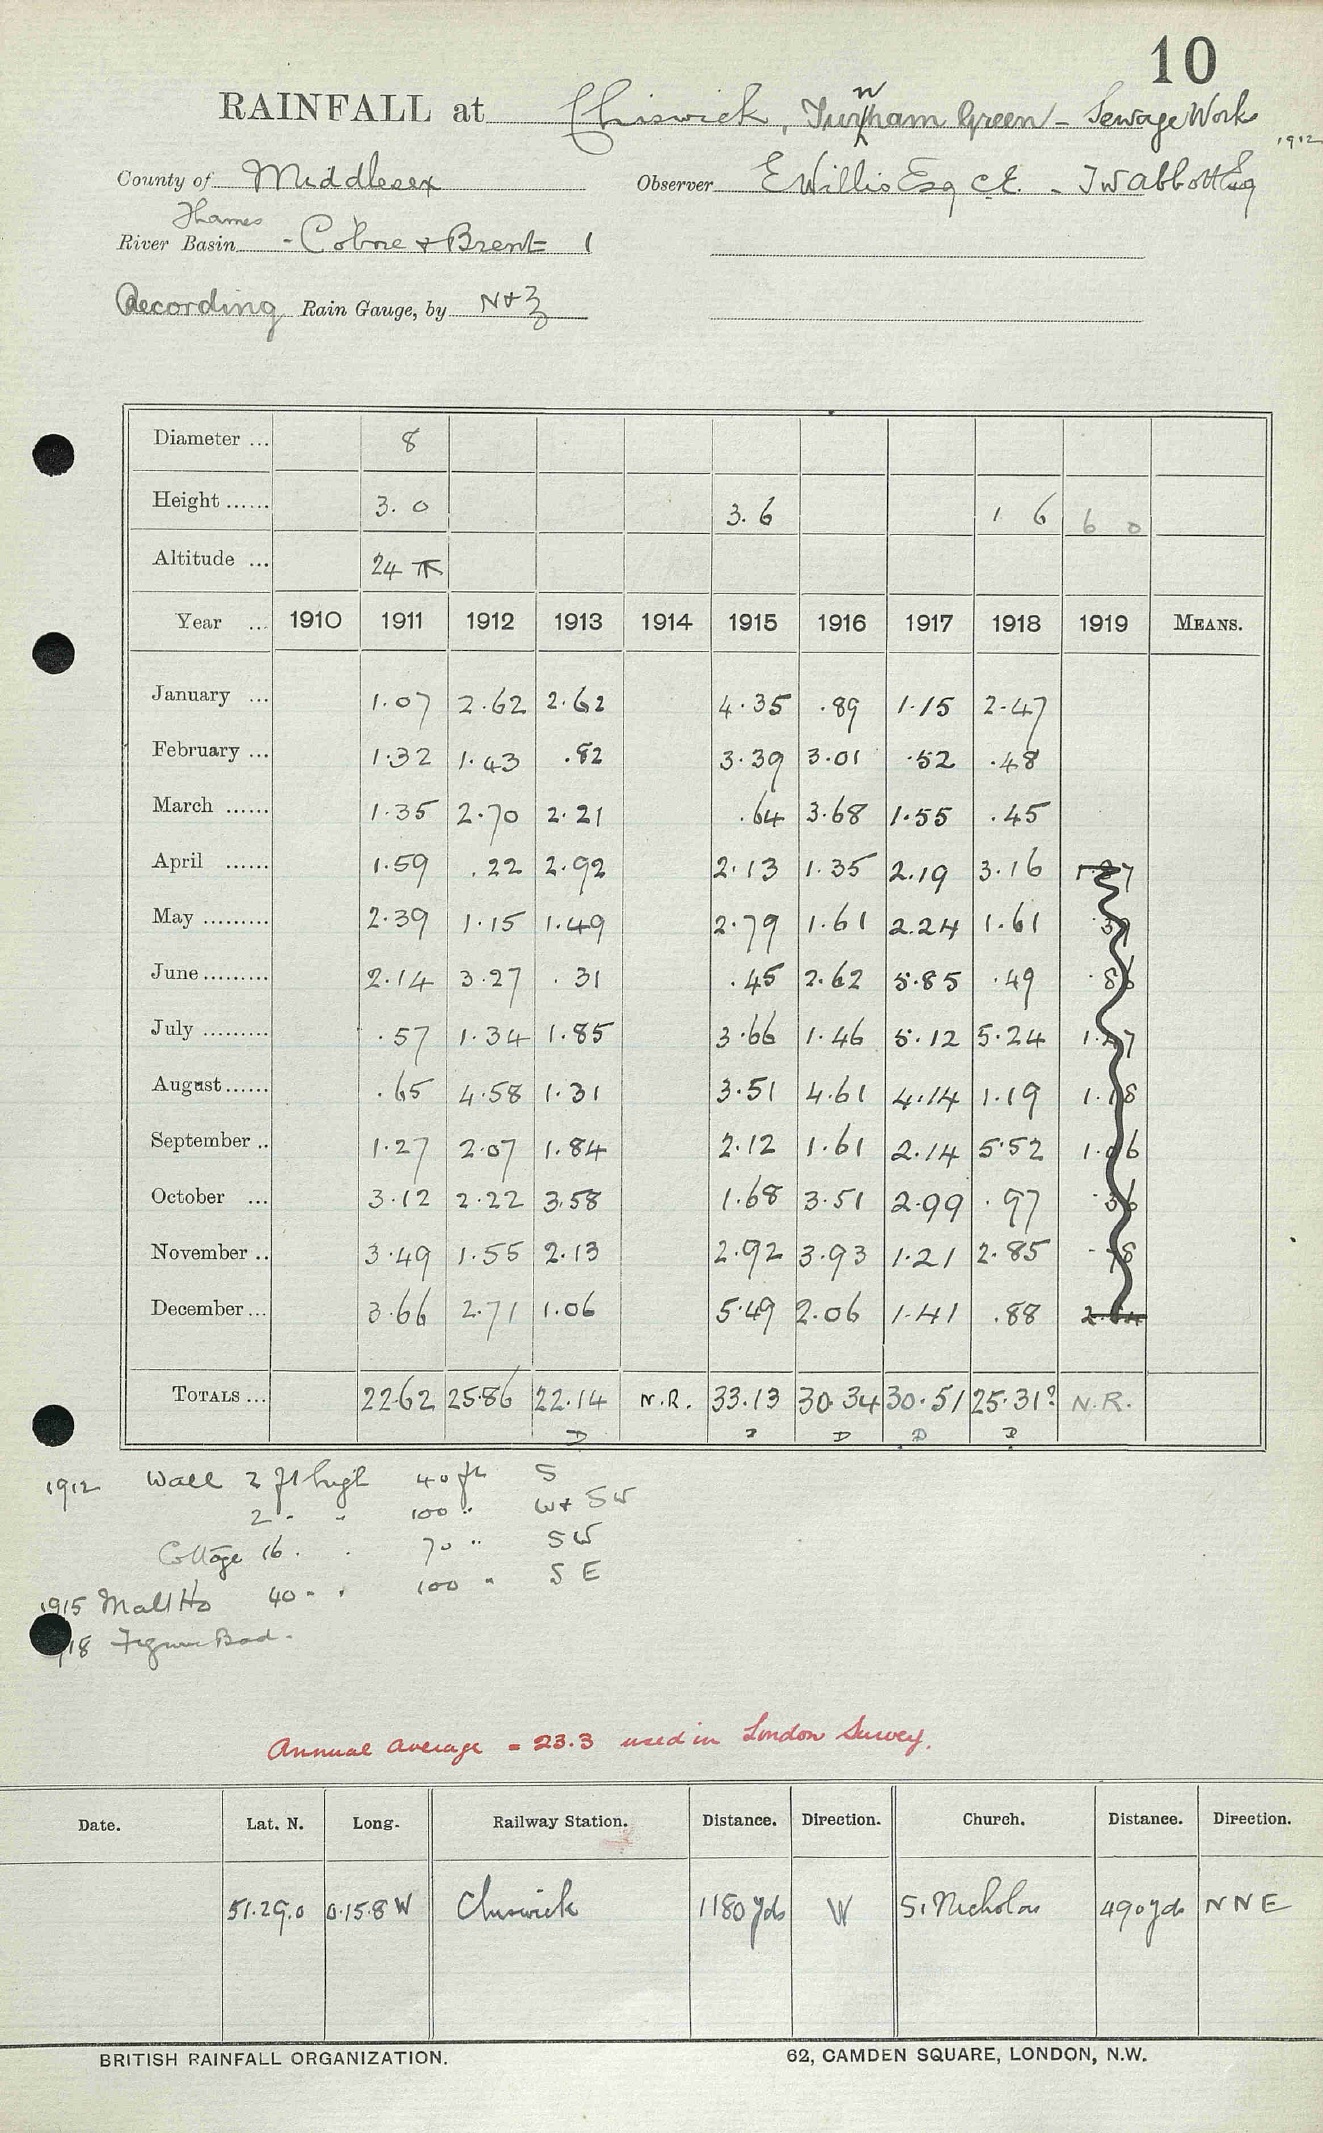 10
RAINFALL at Chiswick, Turnham Green - Sewage Works
1912
County of Middlesex Observer E Willis Esq C.E. - J W Abbott Esq
Thames
River Basin - Colne + Brent 1
Recording Rain Gauge, by N + Z
Diameter ... 8
Height ...... 3. 0 3. 6 1 6 6 0
Altitude ... 24
Year ... 1910 1911 1912 1913 1914 1915 1916 1917 1918 1919 MEANS.
January ... 1.07 2.62 2.62 4.35 .89 1.15 2.47
February ... 1.32 1.43 .82 3.39 3.01 .52 .48
March ...... 1.35 2.70 2.21 .64 3.68 1.55 .45
April ...... 1.59 .22 2.92 2.13 1.35 2.19 3.16
May ......... 2.39 1.15 1.49 2.79 1.61 2.24 1.61
June ......... 2.14 3.27 .31 .45 2.62 5.85 .49 .86
July ......... .57 1.34 1.85 3.66 1.46 5.12 5.24
August ...... .65 4.58 1.31 3.51 4.61 4.14 1.19 1.18
September .. 1.27 2.07 1.84 2.12 1.61 2.14 5.52 1.06
October ... 3.12 2.22 3.58 1.68 3.51 2.99 .97
November .. 3.49 1.55 2.13 2.92 3.93 1.21 2.85
December ... 3.66 2.71 1.06 5.49 2.06 1.41 .88
TOTALS ... 22.62 25.86 22.14 N.R. 33.13 30.34 30.51 25.31? N.R.
D D D D D
1912 Wall 2 ft high 40 ft S
2 " " 100 " W + SW
Cottage 16 " " 70 " SW
1915 Malt Ho 40 " " 100 " S E
18 Figures Bad.
Annual average = 23.3 used in London Survey.
Date. Lat. N. Long. Railway Station. Distance. Direction. Church. Distance. Direction.
51.29.0 0.15.8 W Chiswick 1180 yds W St Nicholas 490 yds N N E
BRITISH RAINFALL ORGANIZATION. 62, CAMDEN SQUARE, LONDON, N.W.